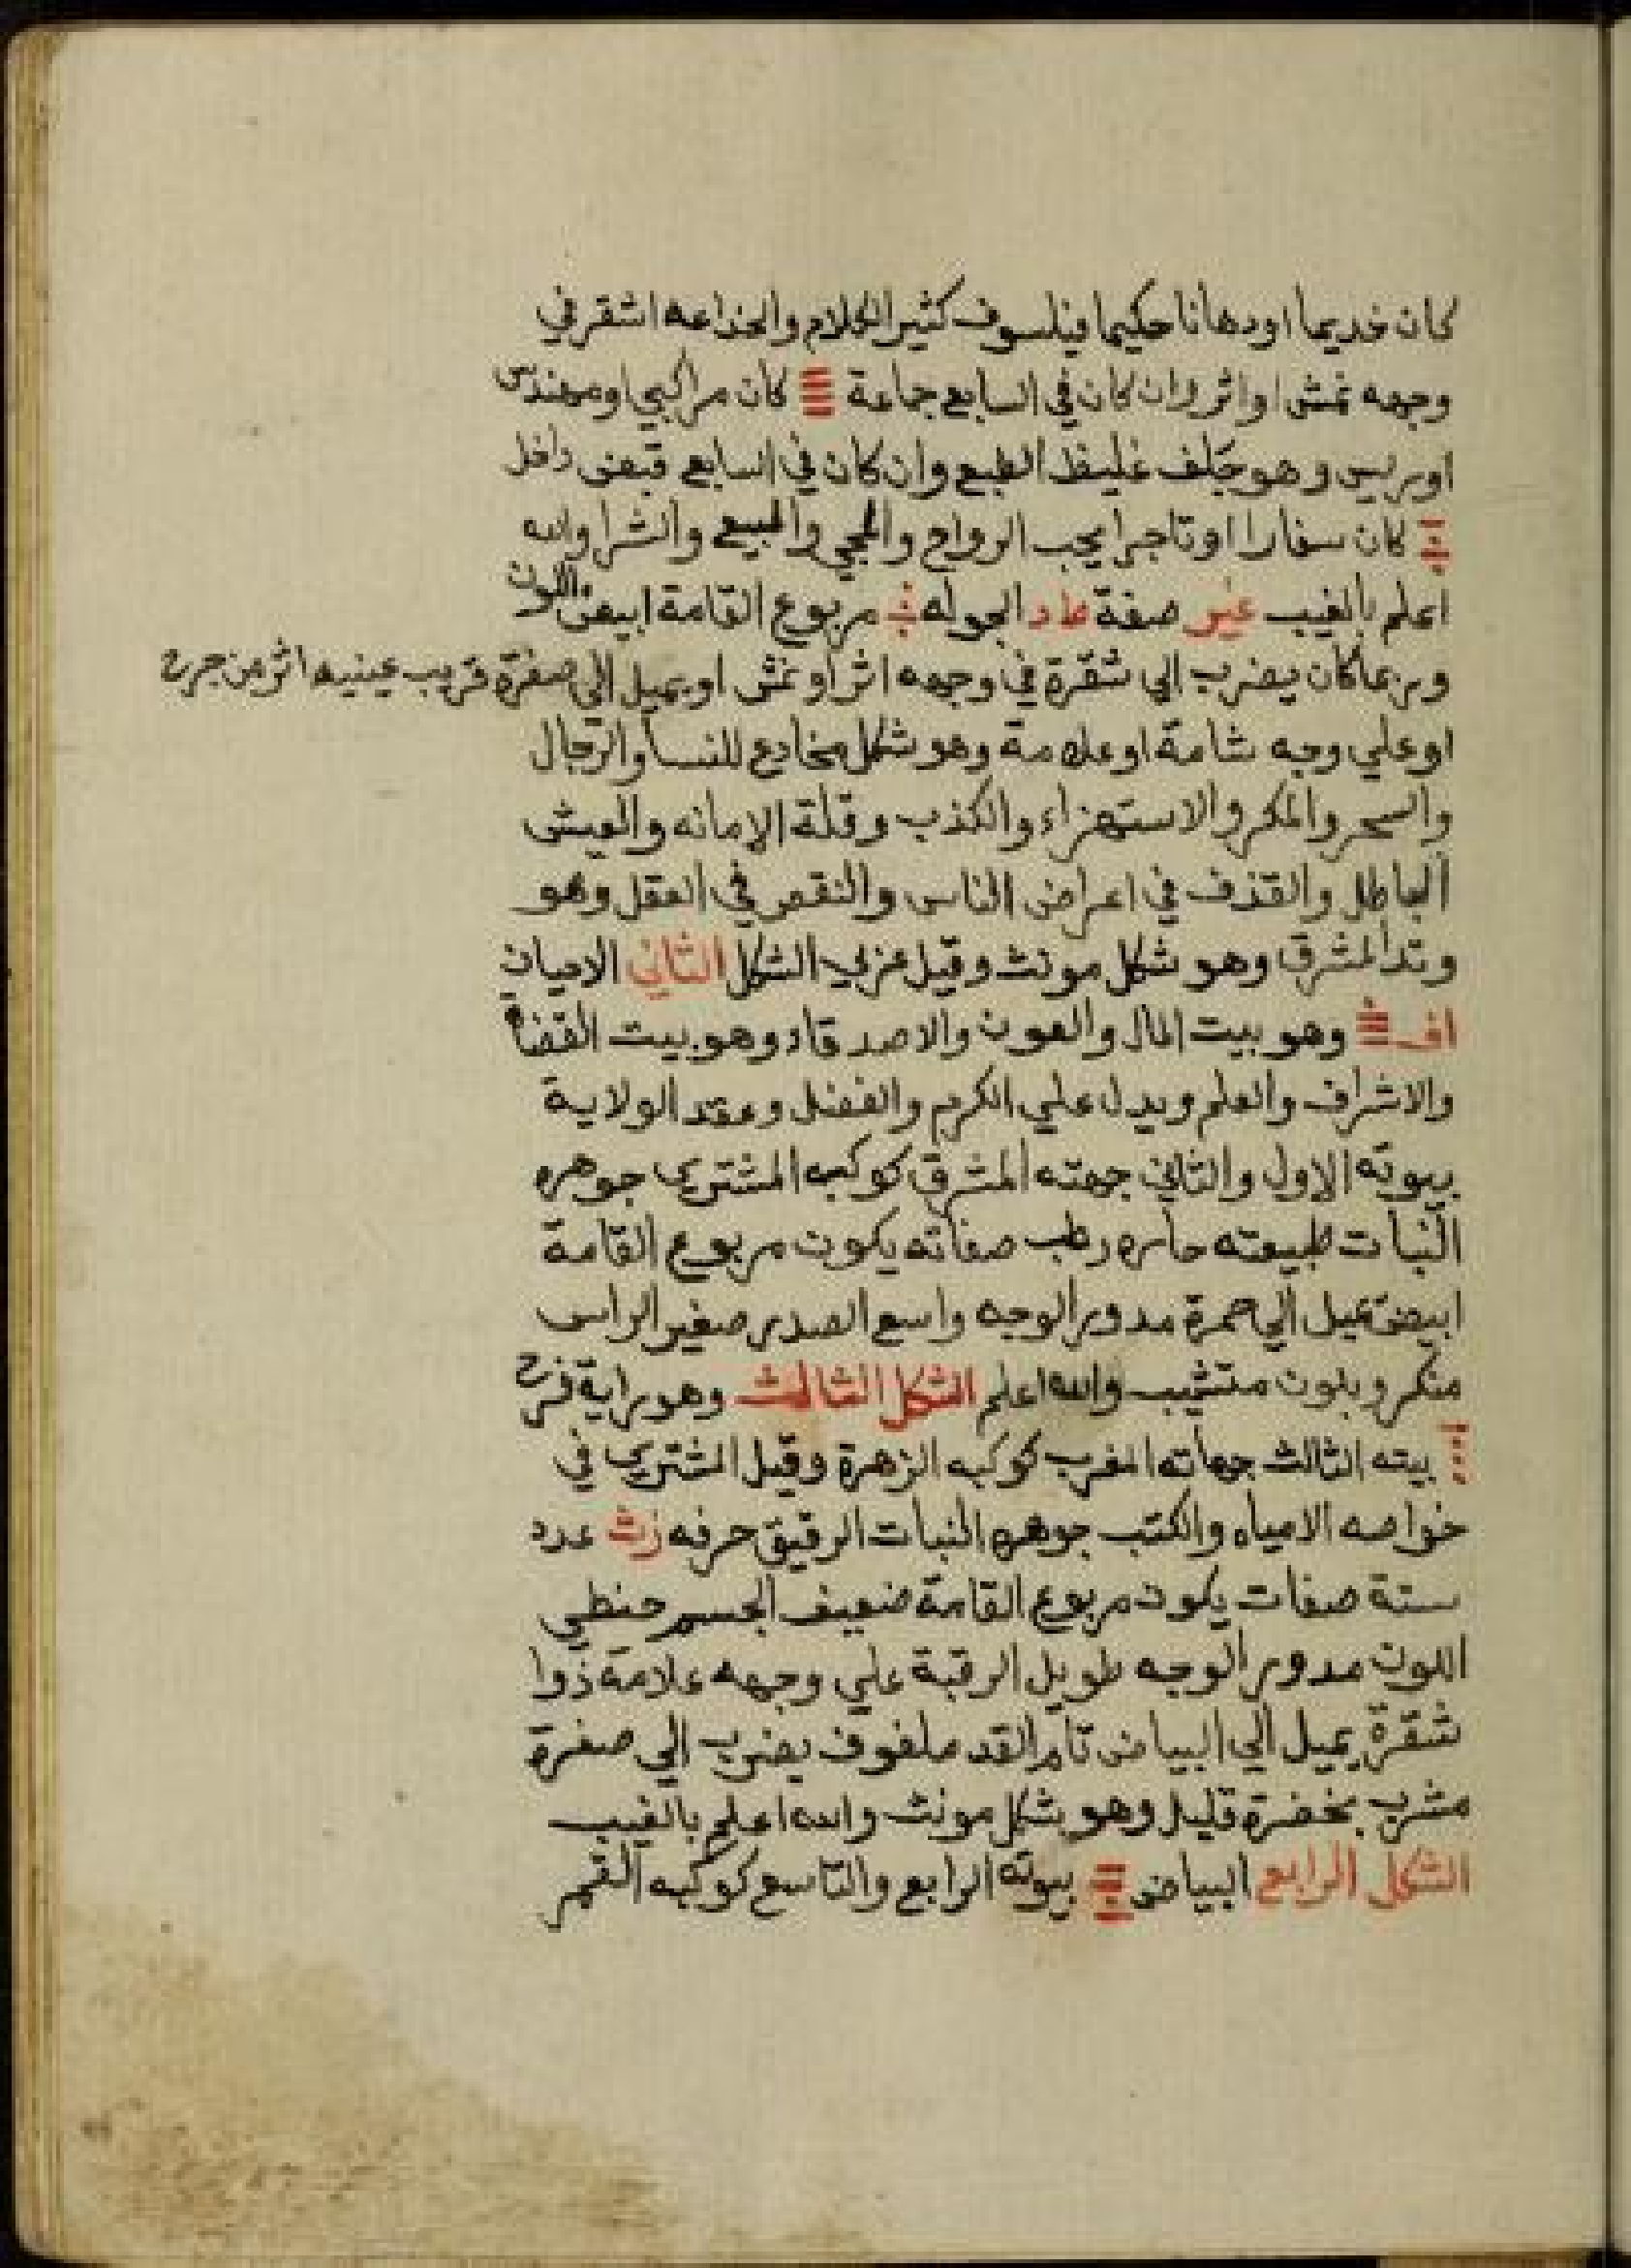 كان خديما اودهانا حكيما فيلسوف كثير الكلام والخداعه اشقر في
وجهه نمش او اثر وان كان في السابع جماعة كان مراكبي او مهندس
اوريس وهو جلف غليظ الطبع وان كان في السابع قبض داخل
كان سفارا او تاجرا يحب الرواح والمجي والبيع والشرا والله
اعلم بالغيب غيره صفة ط د الجوله مربوع القامة ابيض اللون
وربما كان يضرب الي شقرة في وجهه اثر او نمش او يميل الي صفرة قريب عينيه اثر من جرح
او علي وجه شامة او علامة وهو شكل مخادع للنسا والرجال
والسحر والمكر والاستهزاء والكذب وقلة الامانه والعيش
الباطل والقذف في اعراض الناس والنقص في العقل وهو
وتد المشرق وهو شكل مونث وقيل غربي الشكل الثاني الاحيان
اف وهو بيت المال والعون والاصدقاء وهو بيت القضاة
والاشراف والعلم ويدل علي الكرم والفضل وعقد الولاية
بيوته الاول والثاني جهته المشرق كوكبه المشتري جوهره
النبات طبيعته حاره رطب صفاته يكون مربوع القامة
ابيض يميل الي حمرة مدور الوجه واسع الصدر صغير الراس
والله اعلم الشكل الثالث وهو راية فرح
بيته الثالث جهاته المغرب كوكبه الزهرة وقيل المشتري في
خواصه الامياه والكتب جوهره النبات الرقيق حرفه زث عدد
ستة صفات يكون مربوع القامة ضعيف الجسم حنطي
اللون مدور الوجه طويل الرقبة علي وجهه علامة ذوا
شقرة يميل الي البياض تام القد ملفوف يضرب الي صفرة
مشرب بخضرة قليل وهو شكل مونث والله اعلم بالغيب
الشكل الرابع البياض بيوته الرابع والتاسع كوكبه القمر